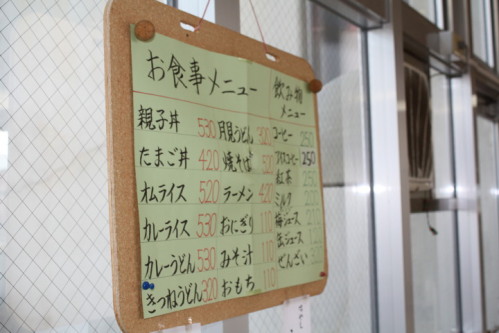 お食事メニュー
親子丼 530
たまご丼 420
オムライス 520
カレーライス 530
カレーうどん 530
きつねうどん 320
月見うどん 300
焼そば
ラーメン 420
おにぎり 110
みそ汁 110
おもち 110
飲み物
メニュー
コーヒー 250
アイスコーヒー 250
紅茶 250
ミルク 200
梅ジュース
缶ジュース
ぜんざい